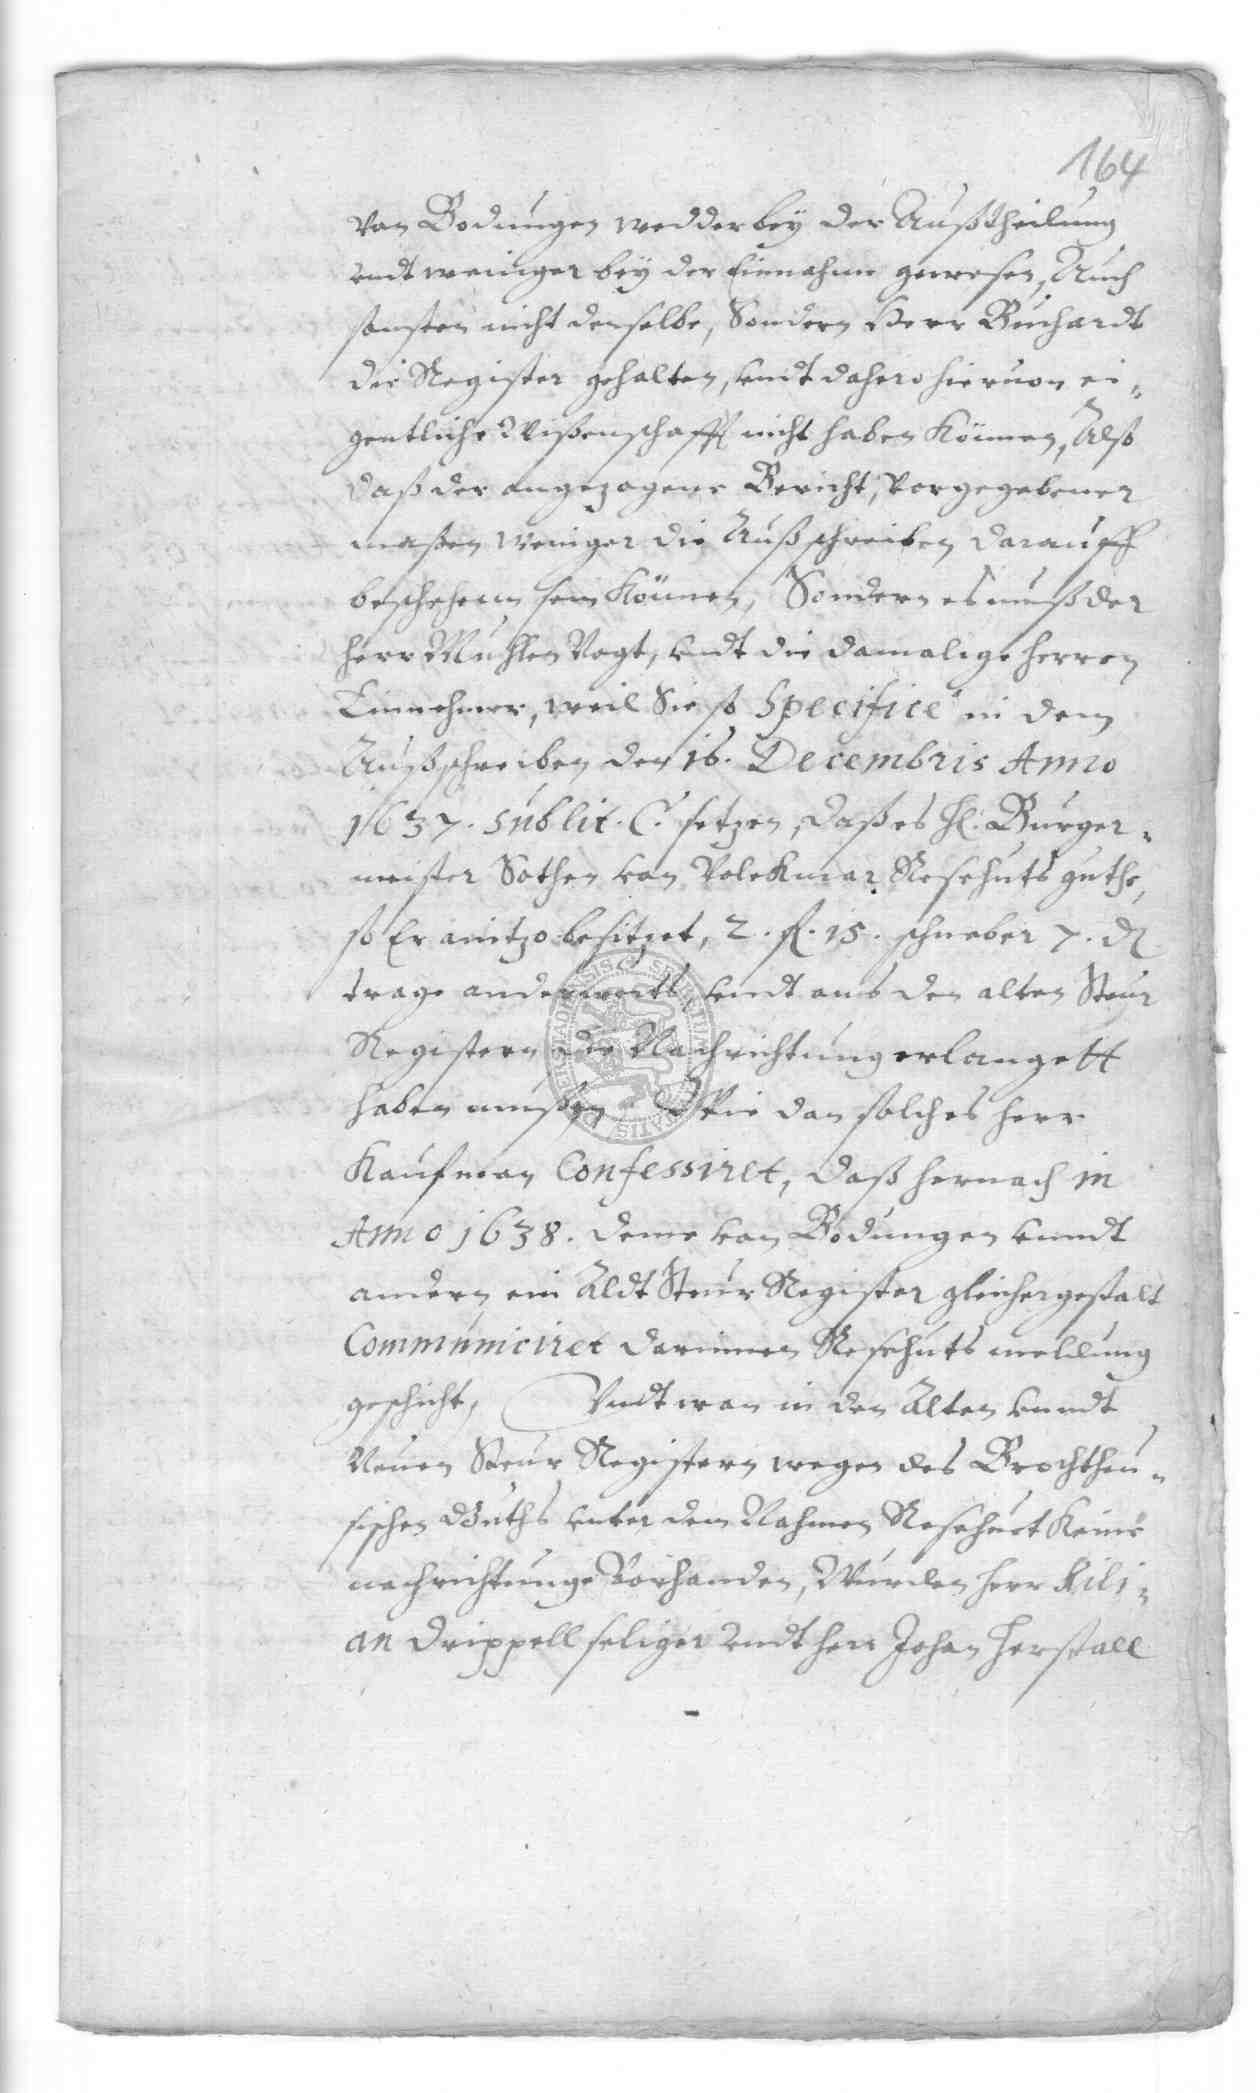 164
von Bodungen wedder beÿ der Außtheilung
undt weiniger beÿ der Einnahme gewesen, Auch
sonsten nicht derselbe, Sondern Herr Buchardt
die Register gehalten, undt dahero hieruon ei„
gentliche Wißenschafft nicht haben Können, Alß
daß der angezogene Bericht, vorgegebener
maßen weniger die Außschreiben darauff
beschehenn sein Können, Sondern es muß der
herr Muhlen Vogt, undt die damalige herren
Einnehmer, weil Sie so Specifice in dem
Außschreiben den 16. Decembris Anno
1637. sub lit. C. setzen, daß es H. Burger„
meister Sothen von Volckmar Resehuts guthe,
so Er anitzo besitzet, 2. fl. 15. schneber 7. d
trage anderwerts undt aus den alten Steur
Registern die Nachrichtung erlangett
haben mußen Wie dan solches herr
Kaufman Confessiret, daß hernach in
Anno 1638. deme von Bodungen unndt
andern ein Aldt Steur Register gleichergestalt
Communiciret darinnen Resehuts meldung
geschicht, Undt wan in den Alten unndt
Neuen Steur Registern wegen des Brochtheu„
sischen Guths unter dem Nahmen Resehuet Keine
nachrichtunge Vorhanden, Wurden herr Kili„
an Drippell seliger undt herr Johan Herstall